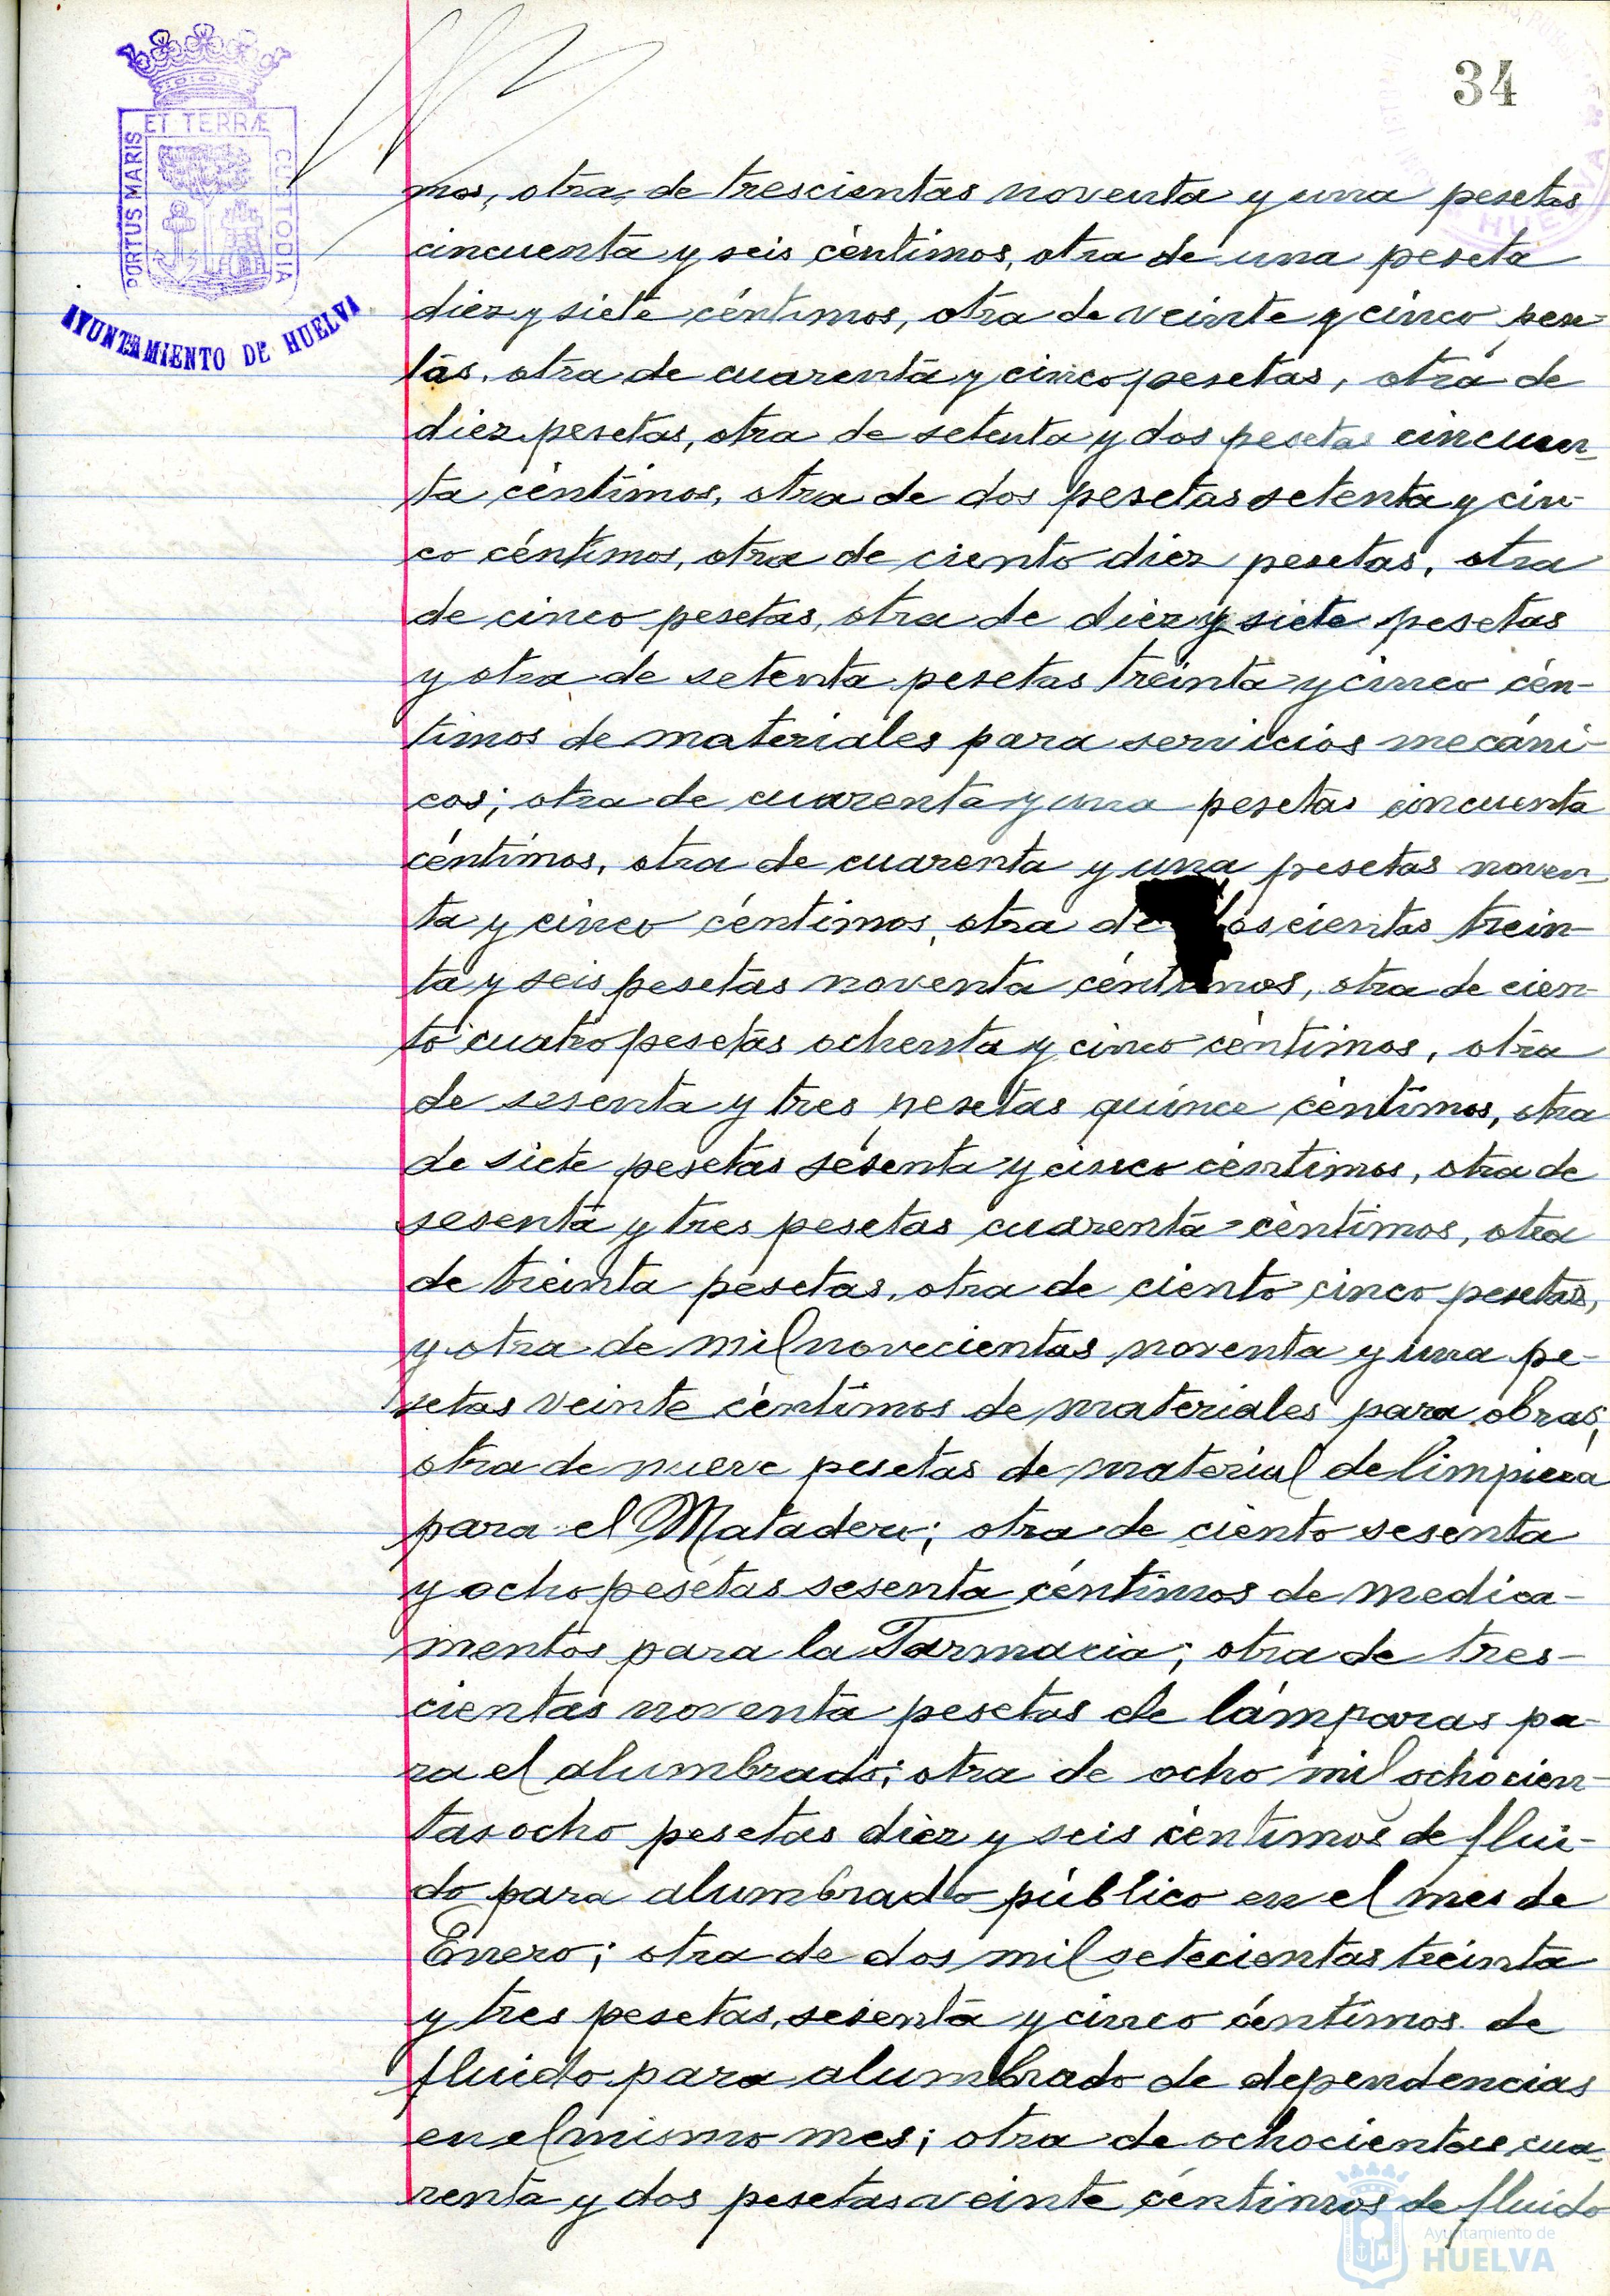 34
ET TERRÆ
PORTUS MARIS
CUSTODIA
AYUNTAMIENTO DE HUELVA
HUELVA
mos, otra, de trescientas noventa y una pesetas
cincuenta y seis céntimos, otra de una peseta
diez y siete céntimos, otra de veinte y cinco pese-
tas, otra de cuarenta y cinco pesetas, otra de
diez pesetas, otra de setenta y dos pesetas cincuen-
ta céntimos, otra de dos pesetas setenta y cin-
co céntimos, otra de ciento diez pesetas, otra
de cinco pesetas, otra de diez y siete pesetas
y otra de setenta pesetas treinta y cinco cén-
timos de materiales para servicios mecáni-
cos; otra de cuarenta y una pesetas cincuenta
céntimos, otra de cuarenta y una pesetas noven-
ta y cinco céntimos, otra de doscientas trein-
ta y seis pesetas noventa céntimos, otra de cien-
to cuatro pesetas ochenta y cinco céntimos, otra
de sesenta y tres pesetas quince céntimos, otra
de siete pesetas sesenta y cinco céntimos, otra de
sesenta y tres pesetas cuarenta céntimos, otra
de treinta pesetas, otra de ciento cinco pesetas,
y otra de mil novecientas noventa y una pe-
setas veinte céntimos de materiales para obras;
otra de nueve pesetas de material de limpieza
para el Matadero; otra de ciento sesenta
y ocho pesetas sesenta céntimos de medica-
mentos para la Farmacia; otra de tres-
cientas noventa pesetas de lámparas pa-
ra el alumbrado; otra de ocho mil ochocien-
tas ocho pesetas diez y seis céntimos de flui-
do para alumbrado público en el mes de
Enero; otra de dos mil setecientas treinta
y tres pesetas, sesenta y cinco céntimos de
fluido para alumbrado de dependencias
en el mismo mes; otra de ochocientas cua-
renta y dos pesetas veinte céntimos de fluido
Ayuntamiento de
HUELVA